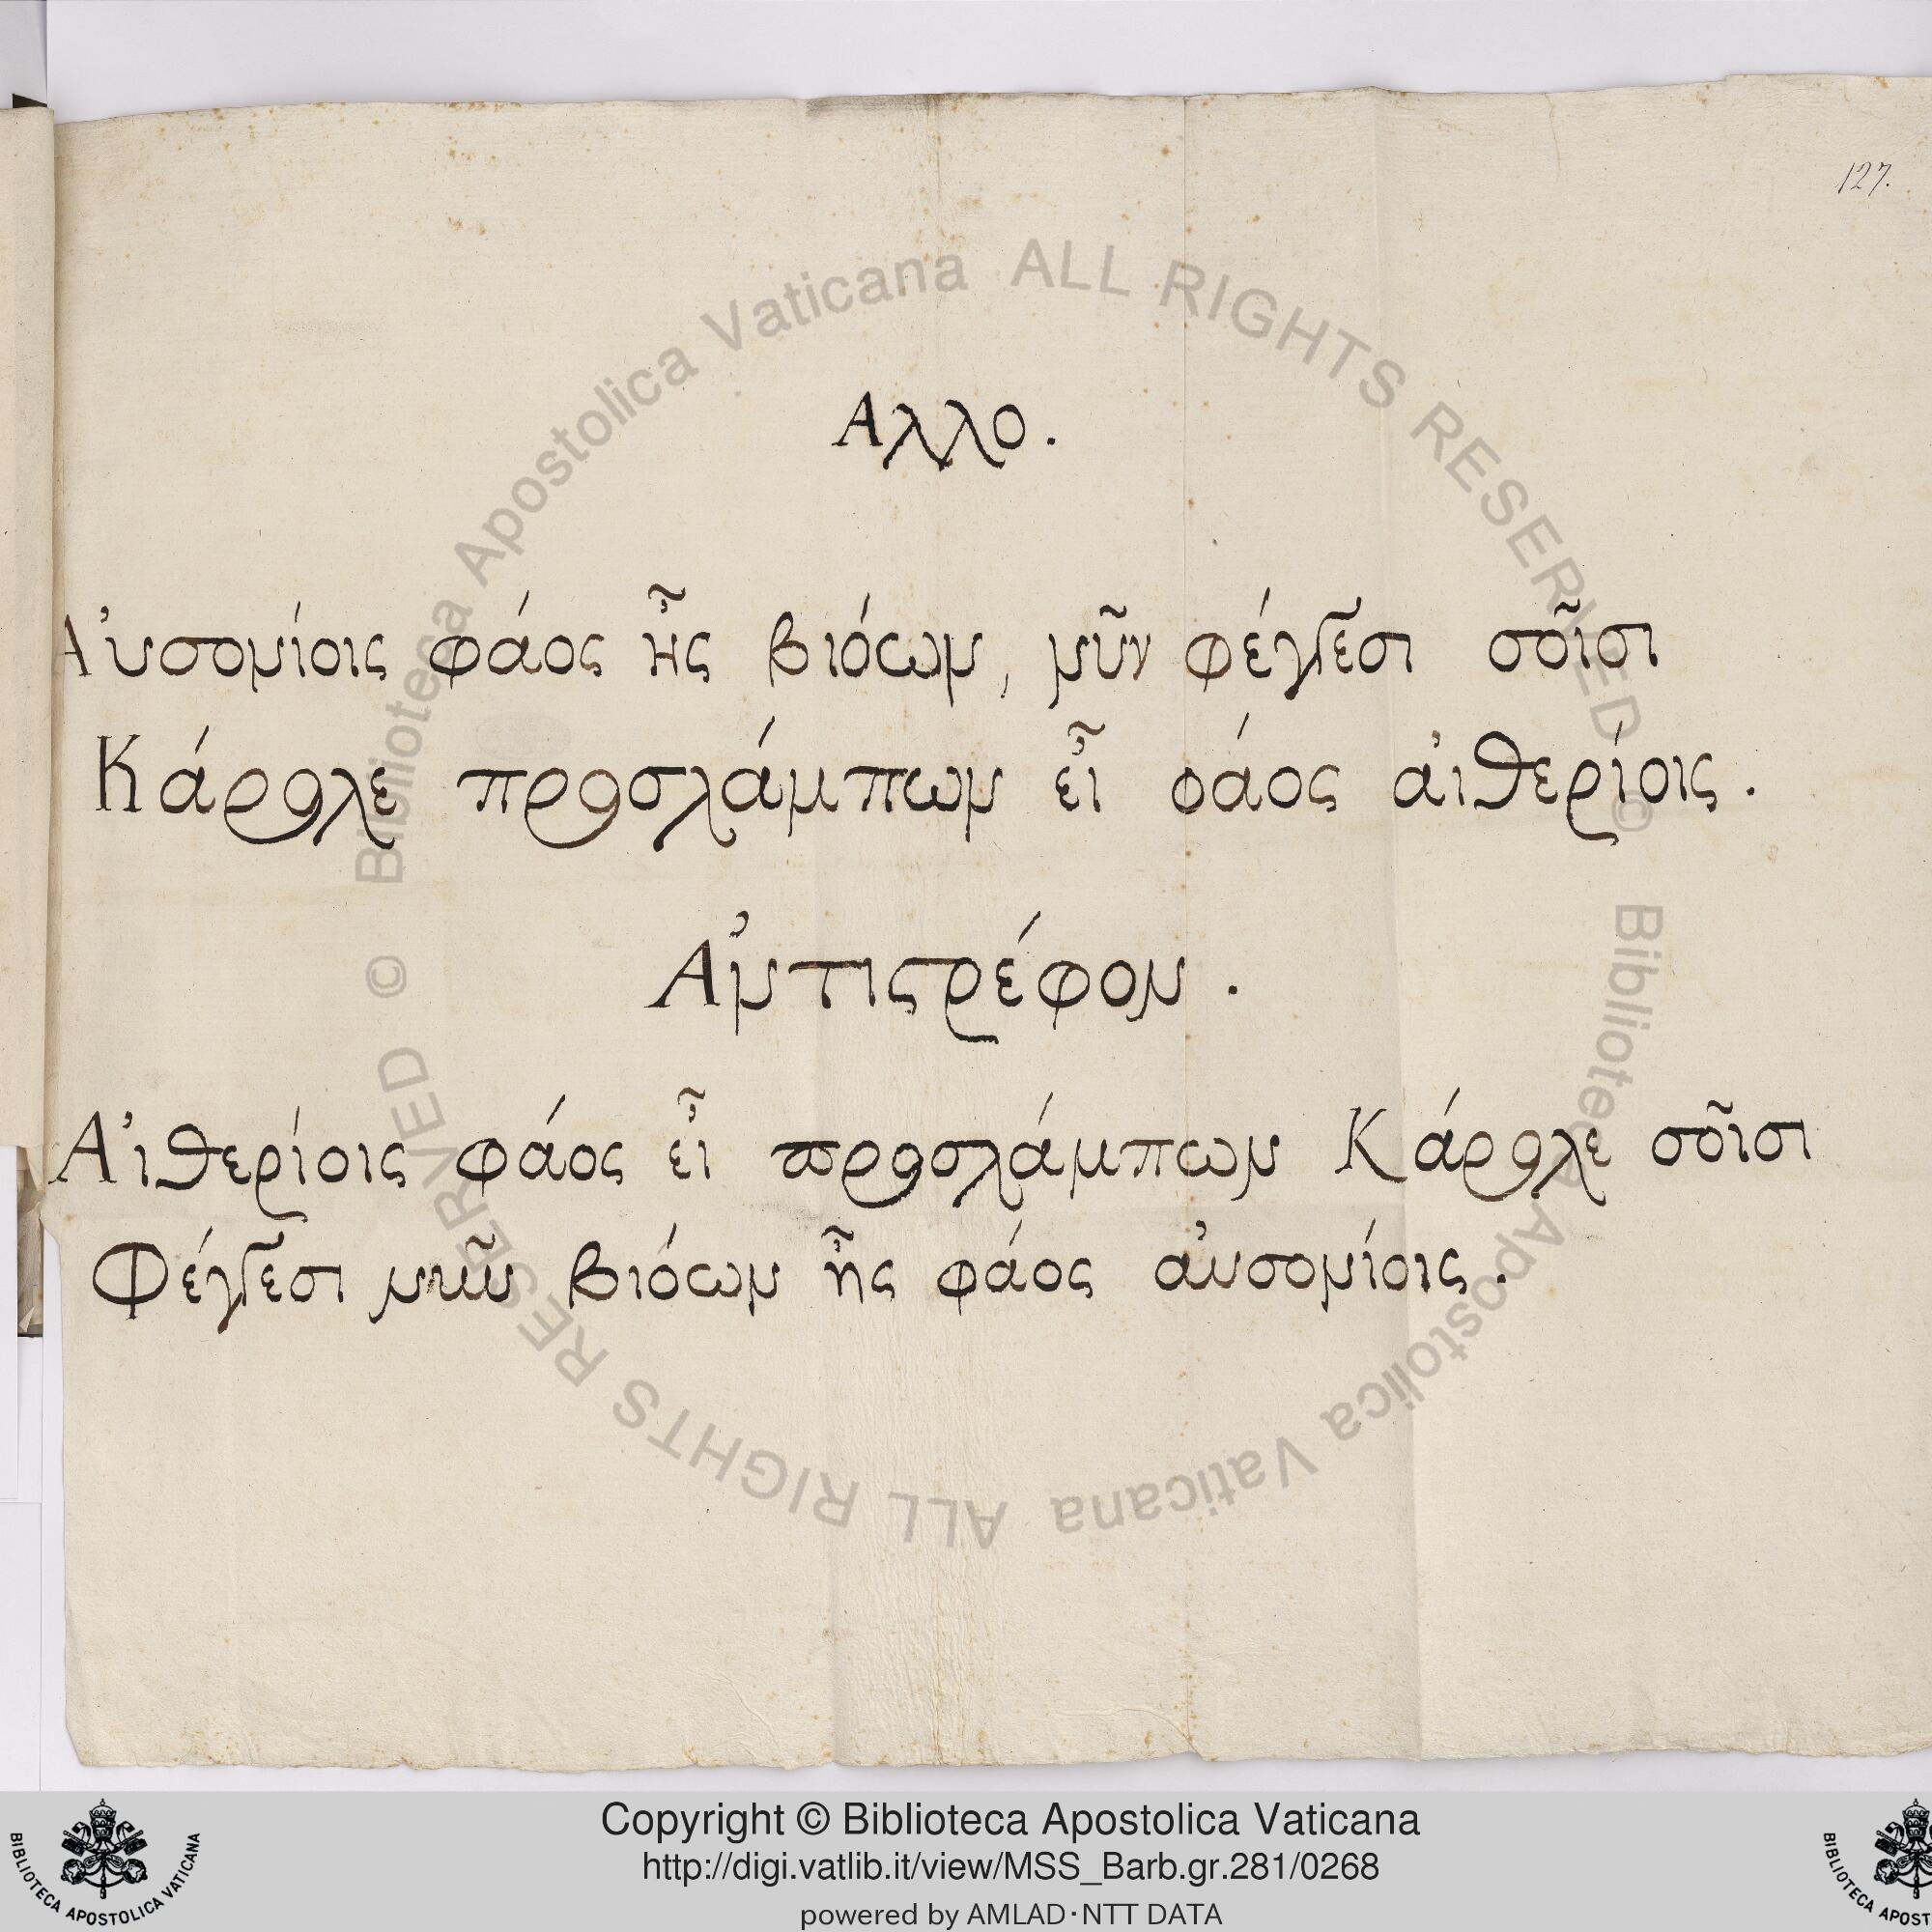 127.
Αλλο.
Αὐσονίοις φάος ἦς βιόων, νῦν φέγγεσι σοῖσι
Κάρολε προσλάμπων εἶ φάος αἰθερίοις.
Αντιστρέφον.
Αἰθερίοις φάος εἶ προσλάμπων Κάρολε σοῖσι
Φέγγεσι νῦν βιόων ἦς φάος αὐσονίοις.
© Biblioteca Apostolica Vaticana ALL RIGHTS RESERVED
© Biblioteca Apostolica Vaticana ALL RIGHTS RESERVED
Copyright © Biblioteca Apostolica Vaticana
http://digi.vatlib.it/view/MSS_Barb.gr.281/0268
powered by AMLAD·NTT DATA
BIBLIOTECA APOSTOLICA VATICANA